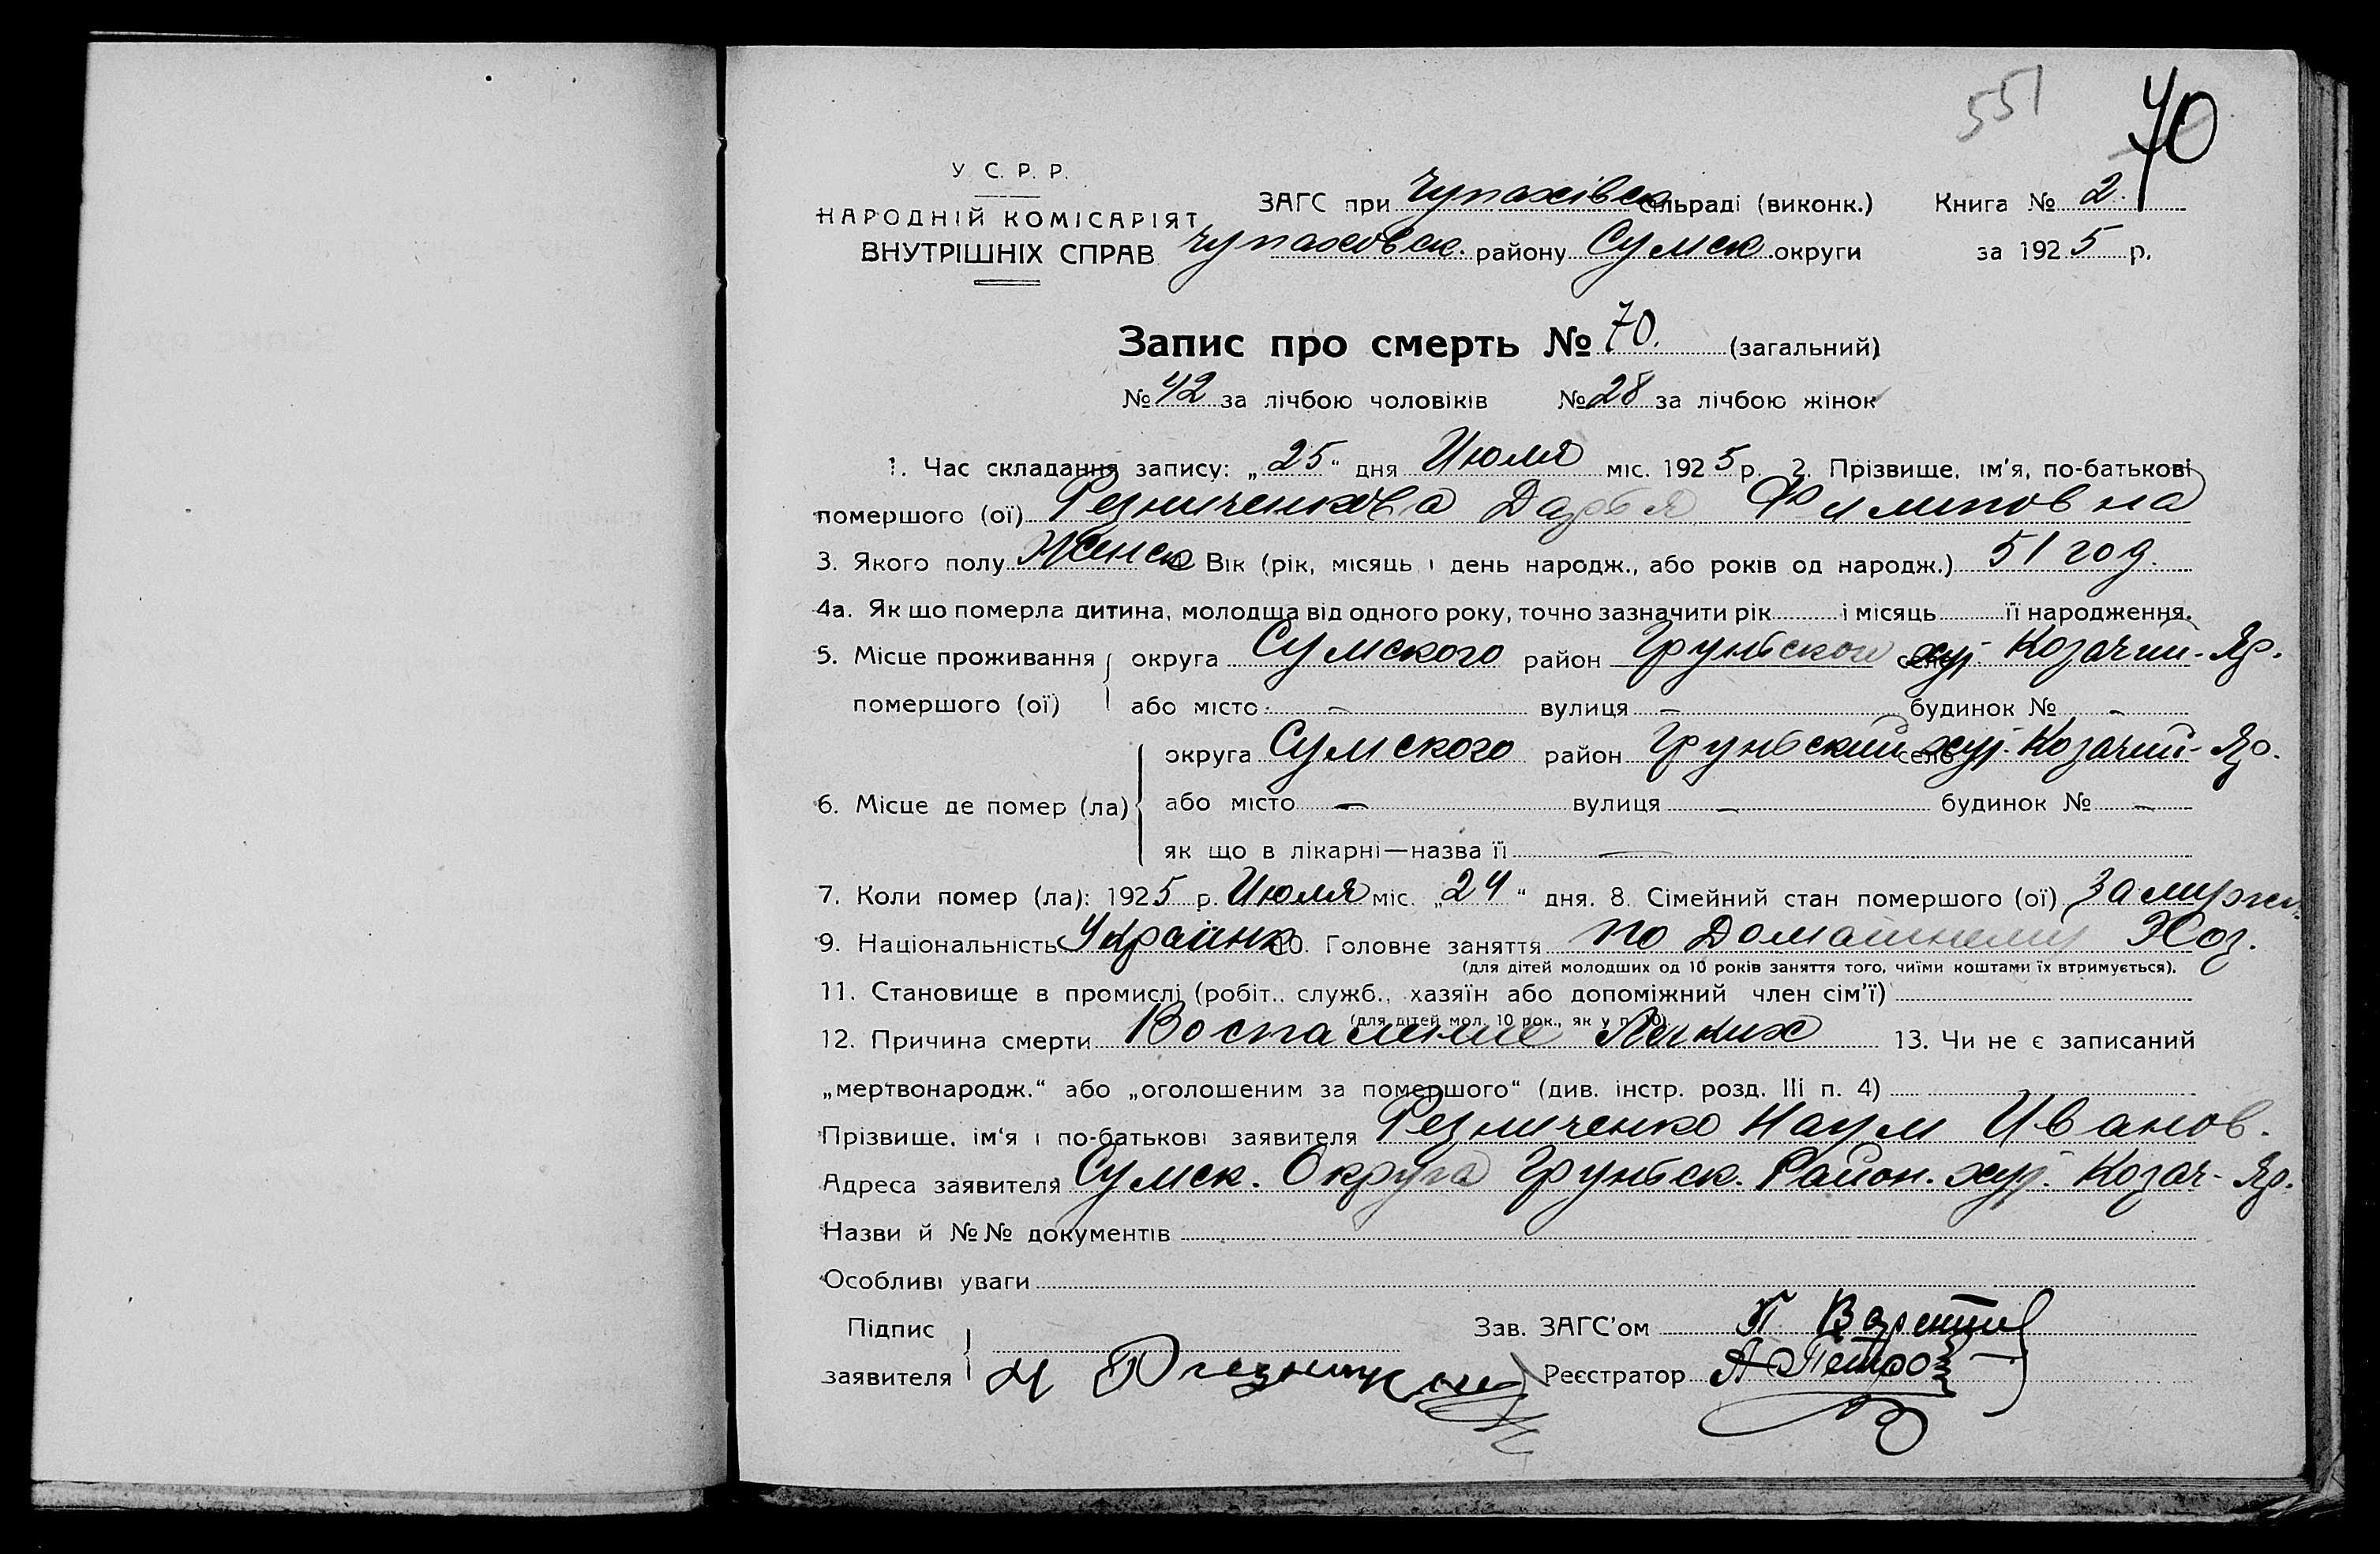 551 70
У. С. Р. Р.
НАРОДНІЙ КОМІСАРІЯТ
ВНУТРІШНІХ СПРАВ
ЗАГС при Чупахівск сільраді (виконк.) Книга № 2.
Чупаховск. району Сумск округи за 1925 р.
Запис про смерть № 70. (загальний)
№ 42 за лічбою чоловіків № 28 за лічбою жінок
1. Час складання запису: „25" дня Июля міс. 1925 р. 2. Прізвище, ім'я, по-батькові
помершого (ої) Резниченкова Дарья Филиповна
3. Якого полу Женск Вік (рік, місяць і день народж., або років од народж.) 51 год.
4а. Як що померла дитина, молодща від одного року, точно зазначити рік і місяць її народження.
5. Місце проживання округа Сумского район Грунського село хут. Козачий-Яр.
помершого (ої) або місто - вулиця - будинок № -
округа Сумского район Грунський село хут. Козачий-Яр.
6. Місце де помер (ла) або місто - вулиця - будинок № -
як що в лікарні—назва її —
7. Коли помер (ла): 1925 р. Июля міс. „24" дня. 8. Сімейний стан помершого (ої) Замужн.
9. Національність Украинк 10. Головне заняття по Домашнему Хоз.
(для дітей молодших од 10 років заняття того, чиїми коштами їх втримується).
11. Становище в промислі (робіт., служб., хазяїн або допоміжний член сім'ї)
(для дітей мол. 10 рок., як у п. 10)
12. Причина смерти Воспаление Легких 13. Чи не є записаний
„мертвонародж." або „оголошеним за помершого" (див. інстр. розд. III п. 4)
Прізвище, ім'я і по-батькові заявителя Резниченко Наум Иванов.
Адреса заявителя Сумск. Округа Груньск. Район. хут. Козач-Яр.
Назви й №№ документів
Особливі уваги
Підпис Зав. ЗАГС'ом П
заявителя Н Реєстратор А